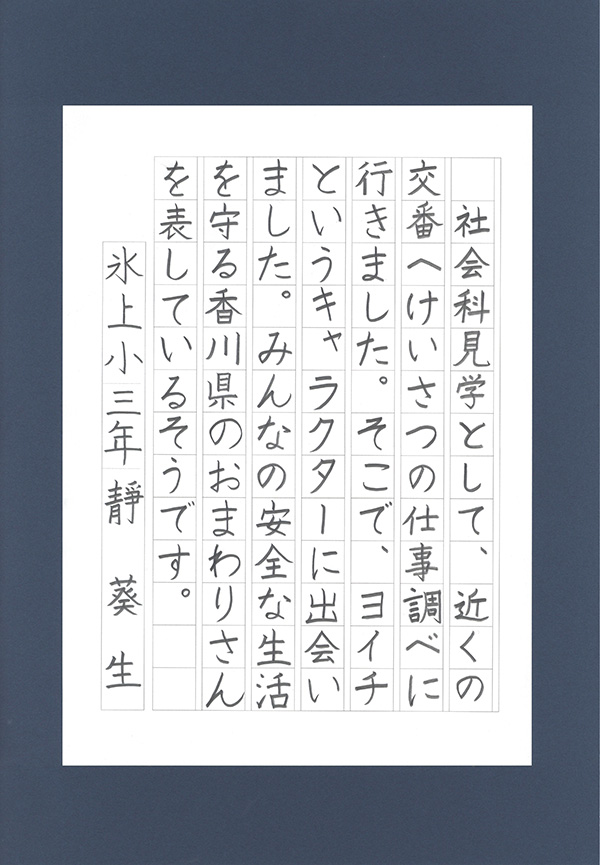 社会科見学として、近くの
交番へけいさつの仕事調べに
行きました。そこで、ヨイチ
というキャラクターに出会い
ました。みんなの安全な生活
を守る香川県のおまわりさん
を表しているそうです。
氷上小三年　靜　葵　生